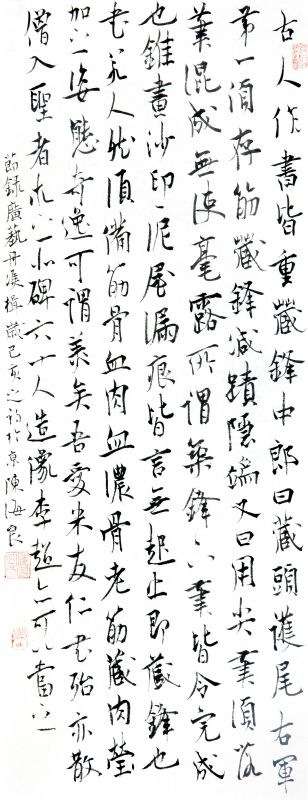 古人作書皆重藏鋒中郎曰藏頭護尾右軍
第一須存筋藏鋒滅蹟隱端又曰用尖筆須落
筆混成無使毫露所謂築鋒下筆皆令完成
也錐畫沙印〻泥屋漏痕皆言無起止即藏鋒也
書若人然須備筋骨血肉血濃骨老筋藏肉瑩
加之姿態奇逸可謂美矣吾愛米友仁書殆亦散
僧入聖者求之北碑六十人造像李超亦可以當之
節錄廣藝舟雙楫歲己亥之初於京陳海良